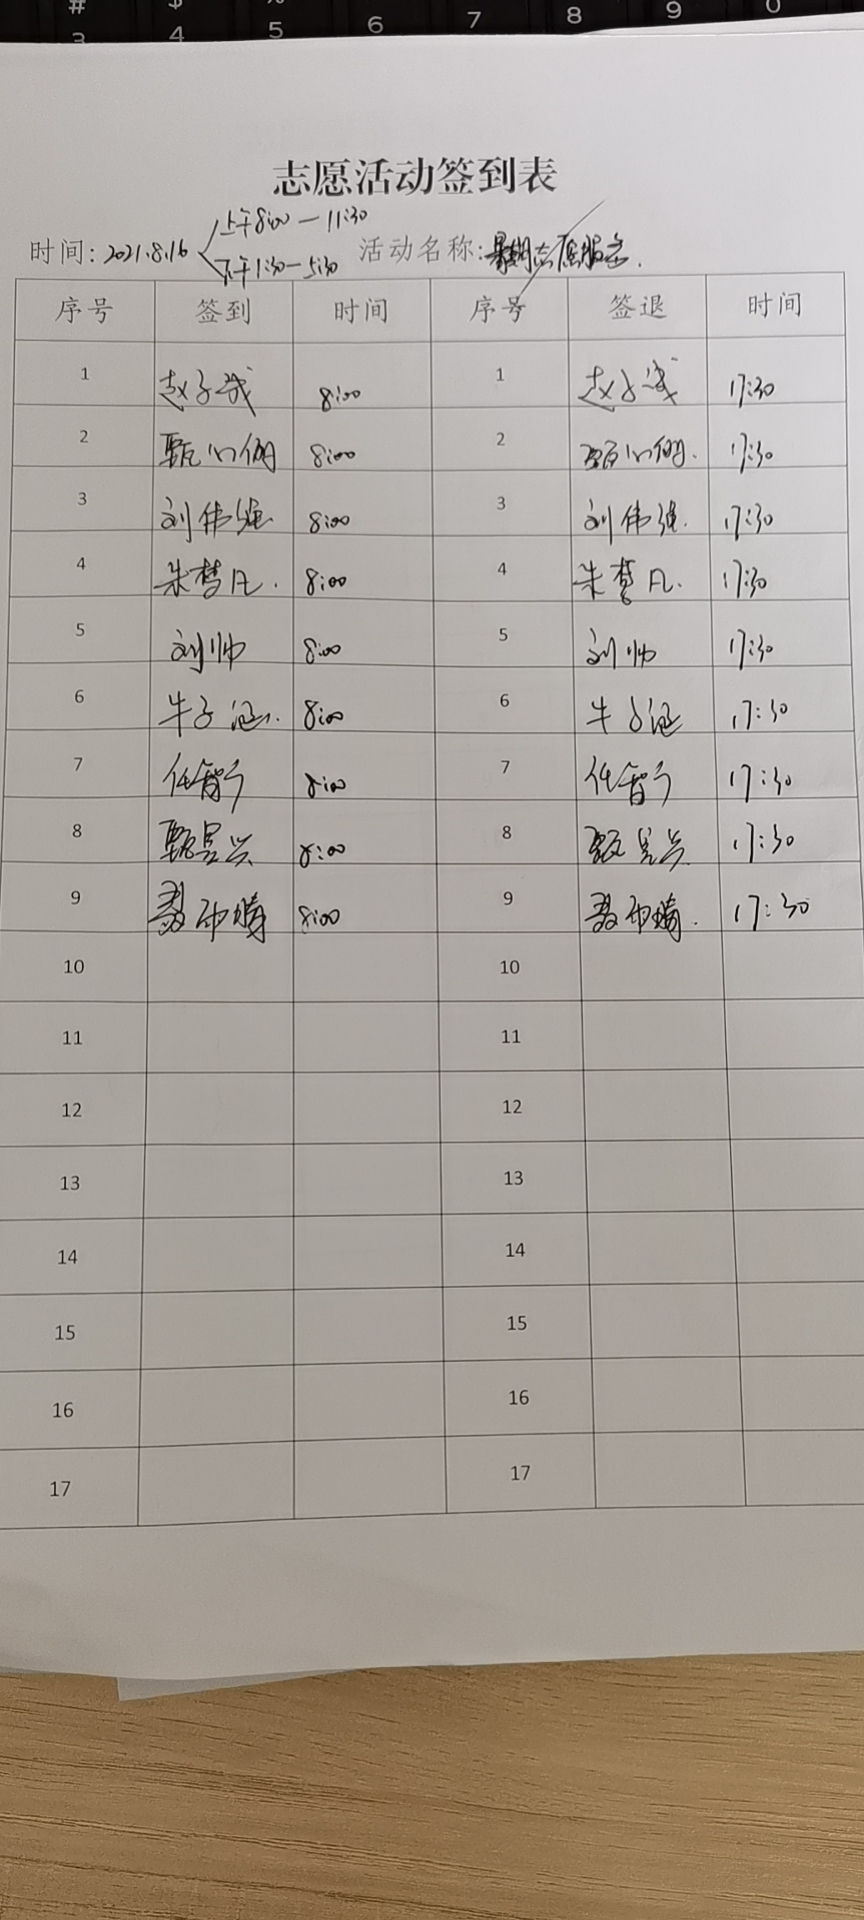 # $ %
3 4 5 6 7 8 9 0
志愿活动签到表
上午8:00—11:30
时间: 2021.8.16 活动名称: 志愿服务.
下午1:30—5:30
序号 签到 时间 序号 签退 时间
1 赵子 8:00 1 赵子 17:30
2 甄 8:00 2 甄 17:30
3 刘伟强 8:00 3 刘伟强. 17:30
4 朱梦凡. 8:00 4 朱梦凡. 17:30
5 刘帅 8:00 5 刘帅 17:30
6 牛子涵. 8:00 6 牛子涵 17:30
7 任智 8:00 7 任智 17:30
8 甄昊兴 8:00 8 甄昊兴 17:30
9 聂雨晴 8:00 9 聂雨晴. 17:30
10 10
11 11
12 12
13 13
14 14
15 15
16 16
17 17